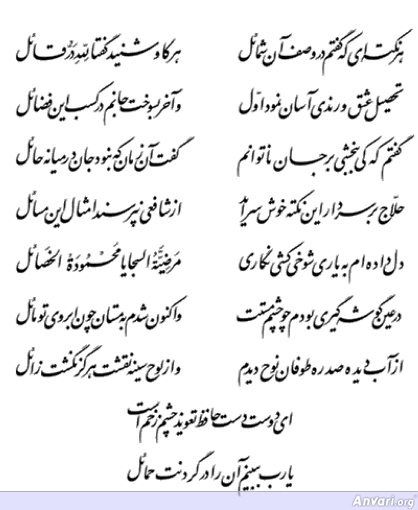 هر نکته‌ای که گفتم در وصف آن شمائل هر کاو شنید گفتا لِلّهِ دَرُّ قائل
تحصیل عشق و رندی آسان نمود اوّل و آخر بسوخت جانم در کسب این فضائل
گفتم که کی ببخشی بر جان ناتوانم گفت آن زمان که نبود جان در میانه حائل
حلّاج بر سر دار این نکته خوش سراید از شافعی نپرسند امثال این مسائل
دل داده‌ام به یاری شوخی کشی نگاری مَرضِیَّةُ السجایا مَحمُودَةُ الخَصائل
در عین گوشه‌گیری بودم چو چشم مستت و اکنون شدم به مستان چون ابروی تو مائل
از آب دیده صد ره طوفان نوح دیدم و از لوح سینه نقشت هرگز نگشت زائل
ای دوست دست حافظ تعویذ چشم زخم است
یا رب ببینم آن را در گردنت حمائل
Anvari.org